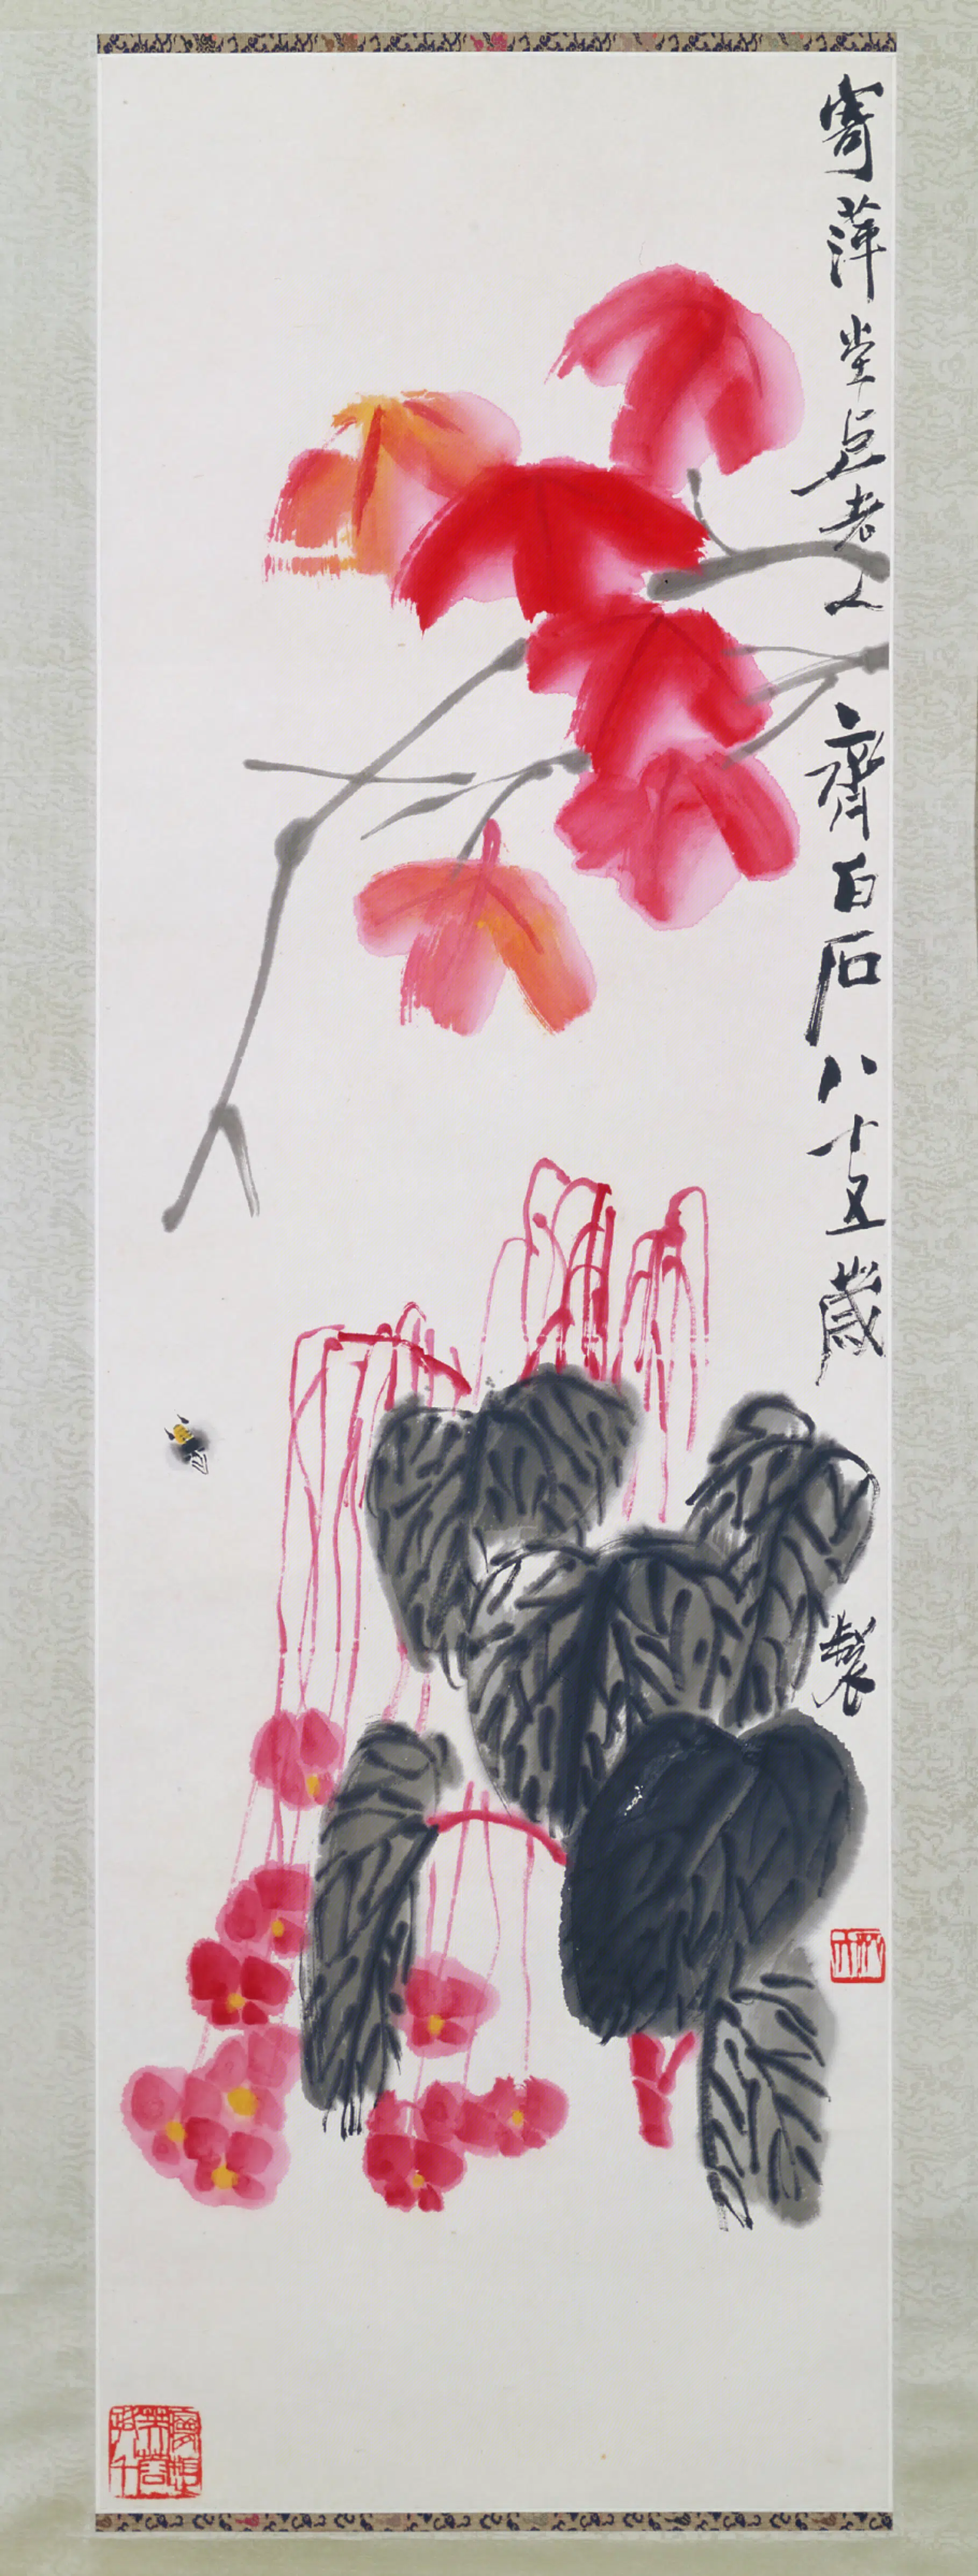 寄萍堂上老人齊白石八十五歲製